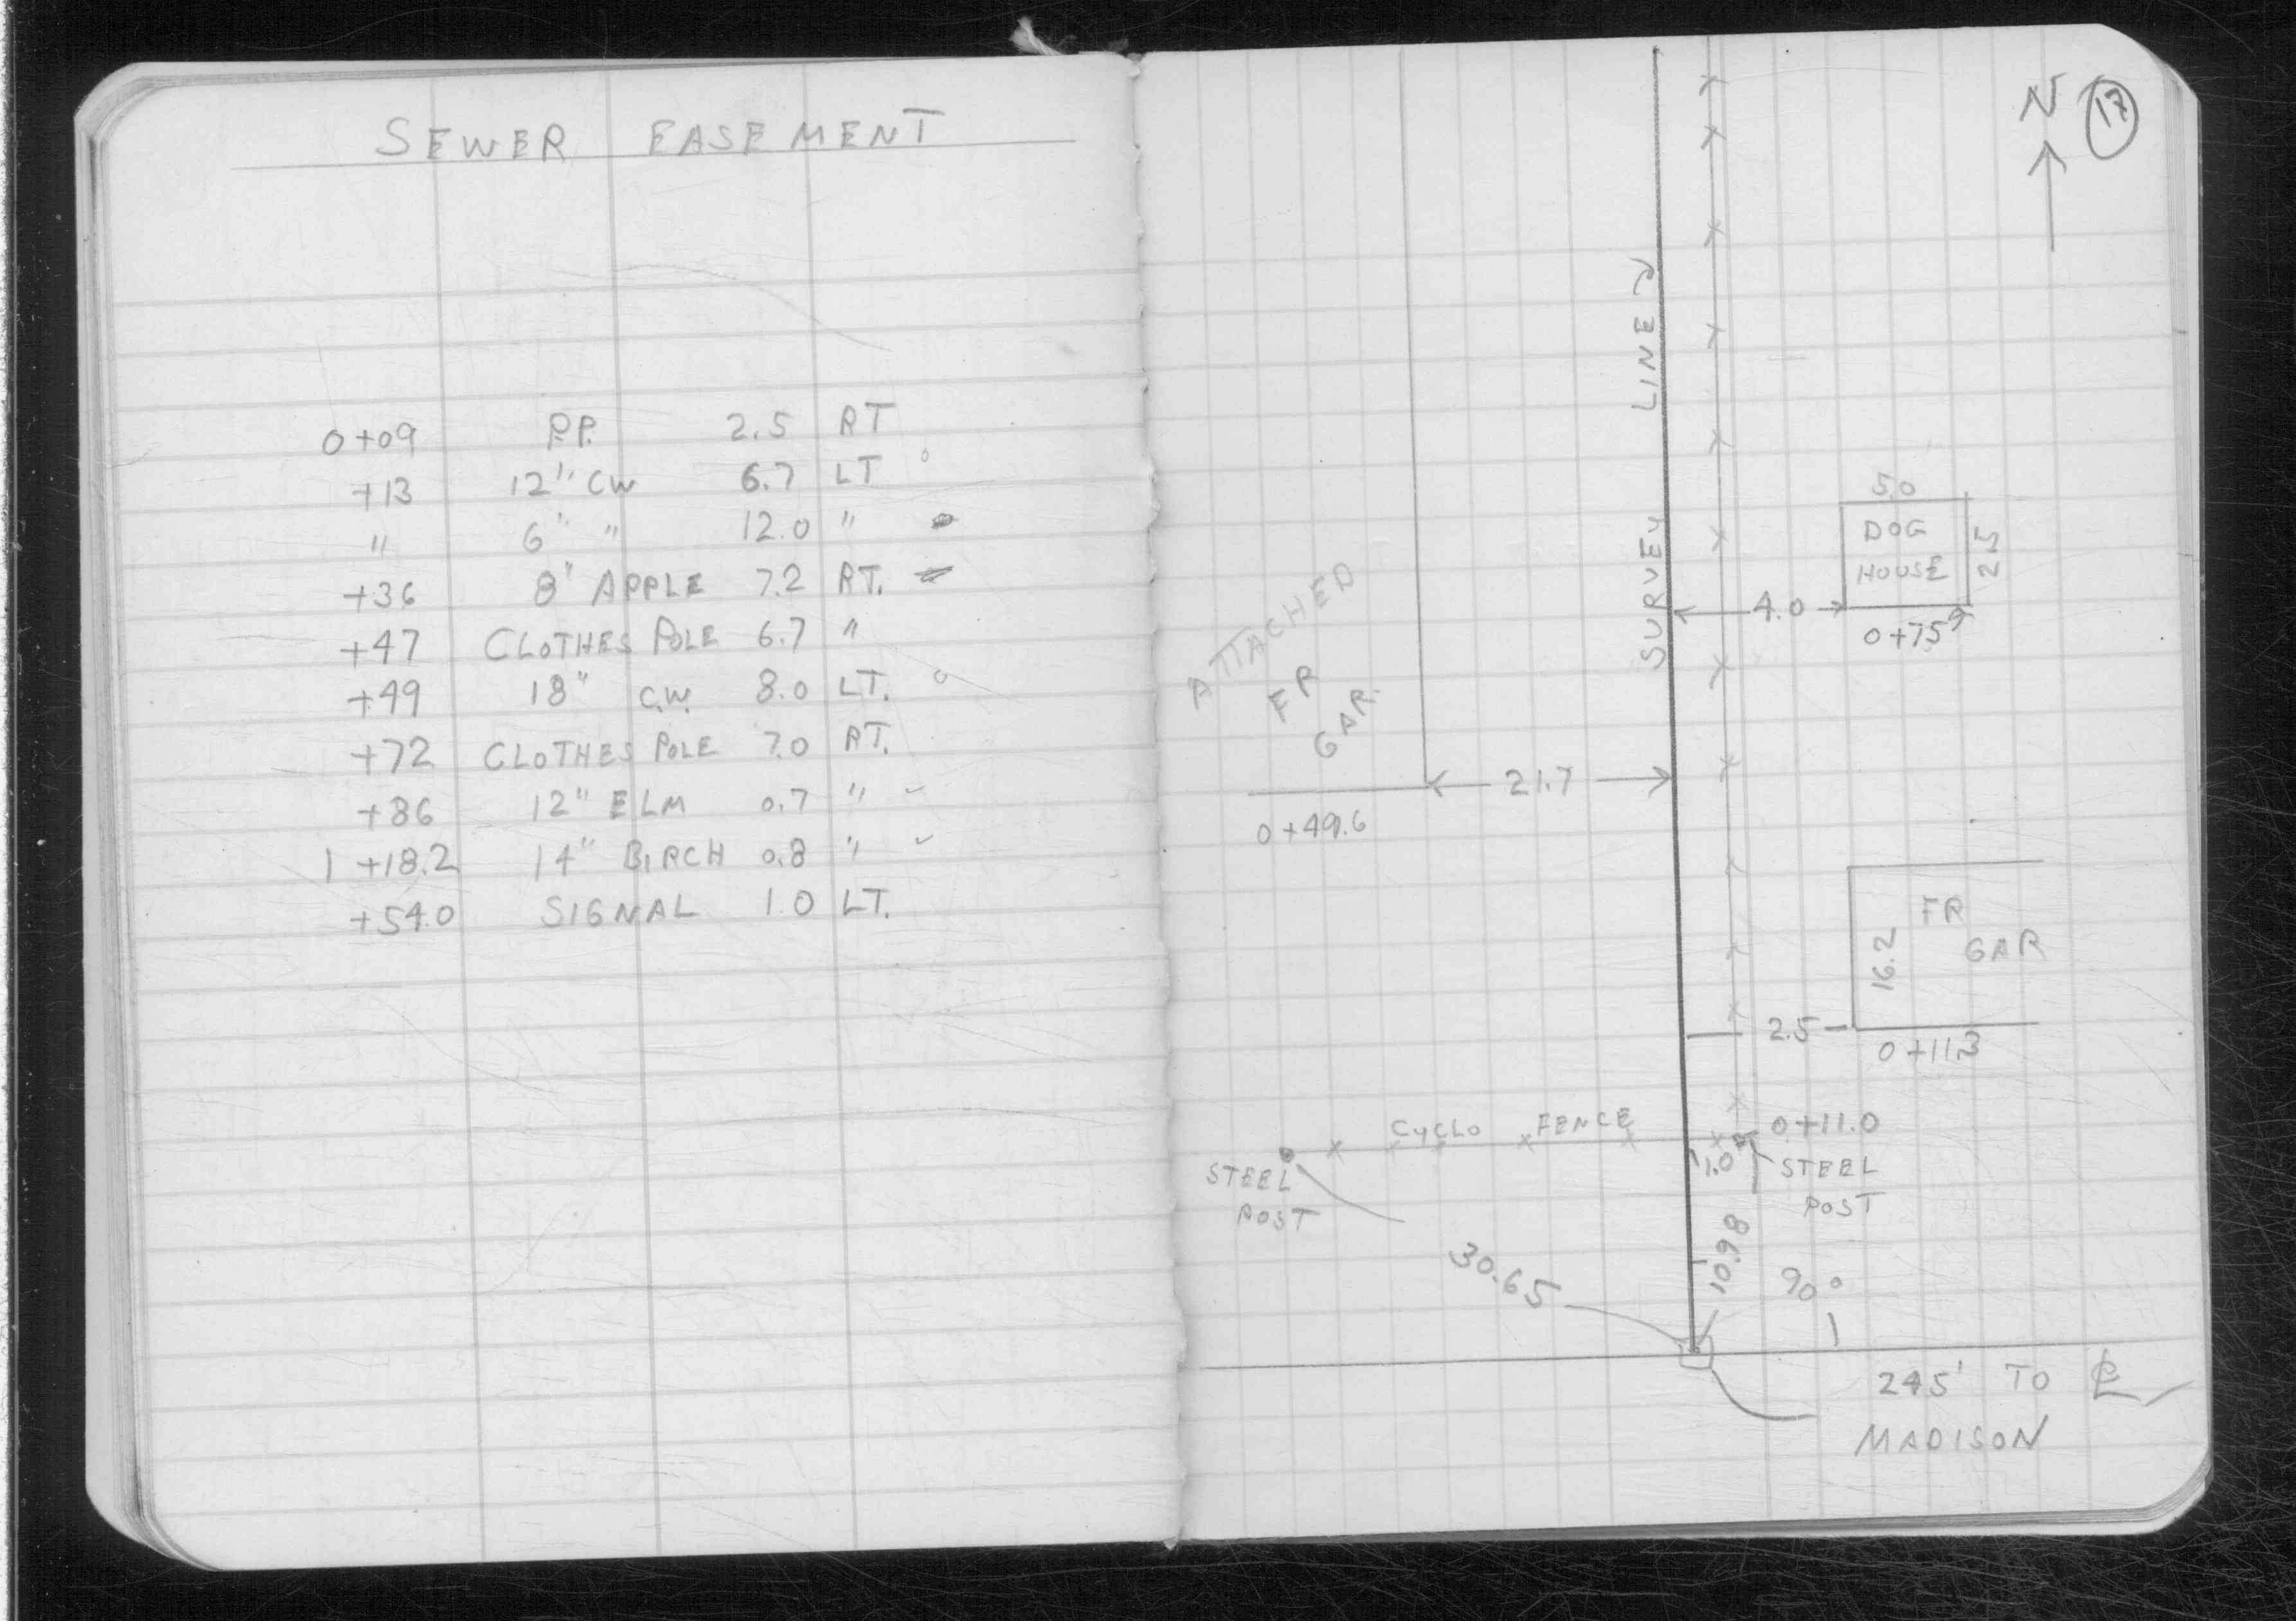 SEWER EASEMENT
0+09 P.P. 2.5 RT
+13 12" CW 6.7 LT
" 6" " 12.0 "
+36 8" APPLE 7.2 RT.
+47 CLOTHES POLE 6.7 "
+49 18" C.W. 8.0 LT.
+72 CLOTHES POLE 7.0 RT.
+86 12" ELM 0.7 "
1+18.2 14" BIRCH 0.8 "
+54.0 SIGNAL 1.0 LT.
N
17
SURVEY LINE
5.0
DOG
HOUSE
2.5
4.0
0+75
ATTACHED
FR
GAR.
21.7
0+49.6
FR
GAR
16.2
2.5
0+11.3
CYCLO FENCE
0+11.0
1.0
STEEL
POST
STEEL
POST
10.98
30.65
90°
245' TO ℄
MADISON